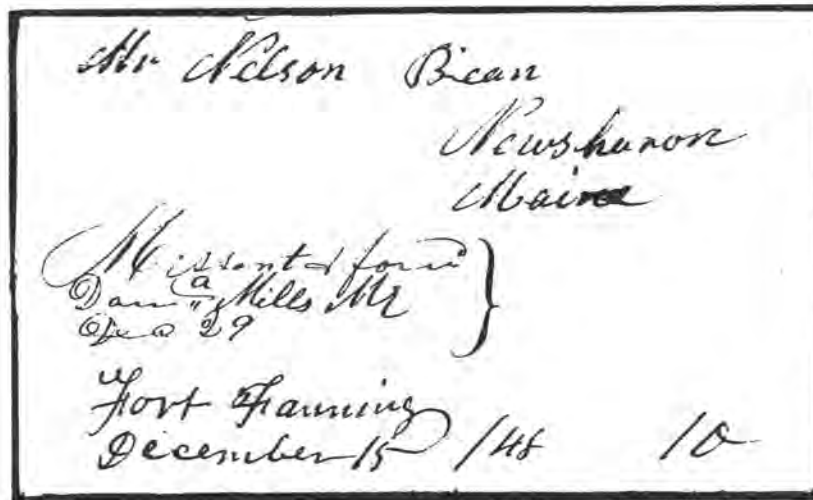 Mr Nelson Bean
Newsharon
Maine
Missent & ford
Dam a Mills Me
Dec 29
Fort Fanning
December 15 /48 10